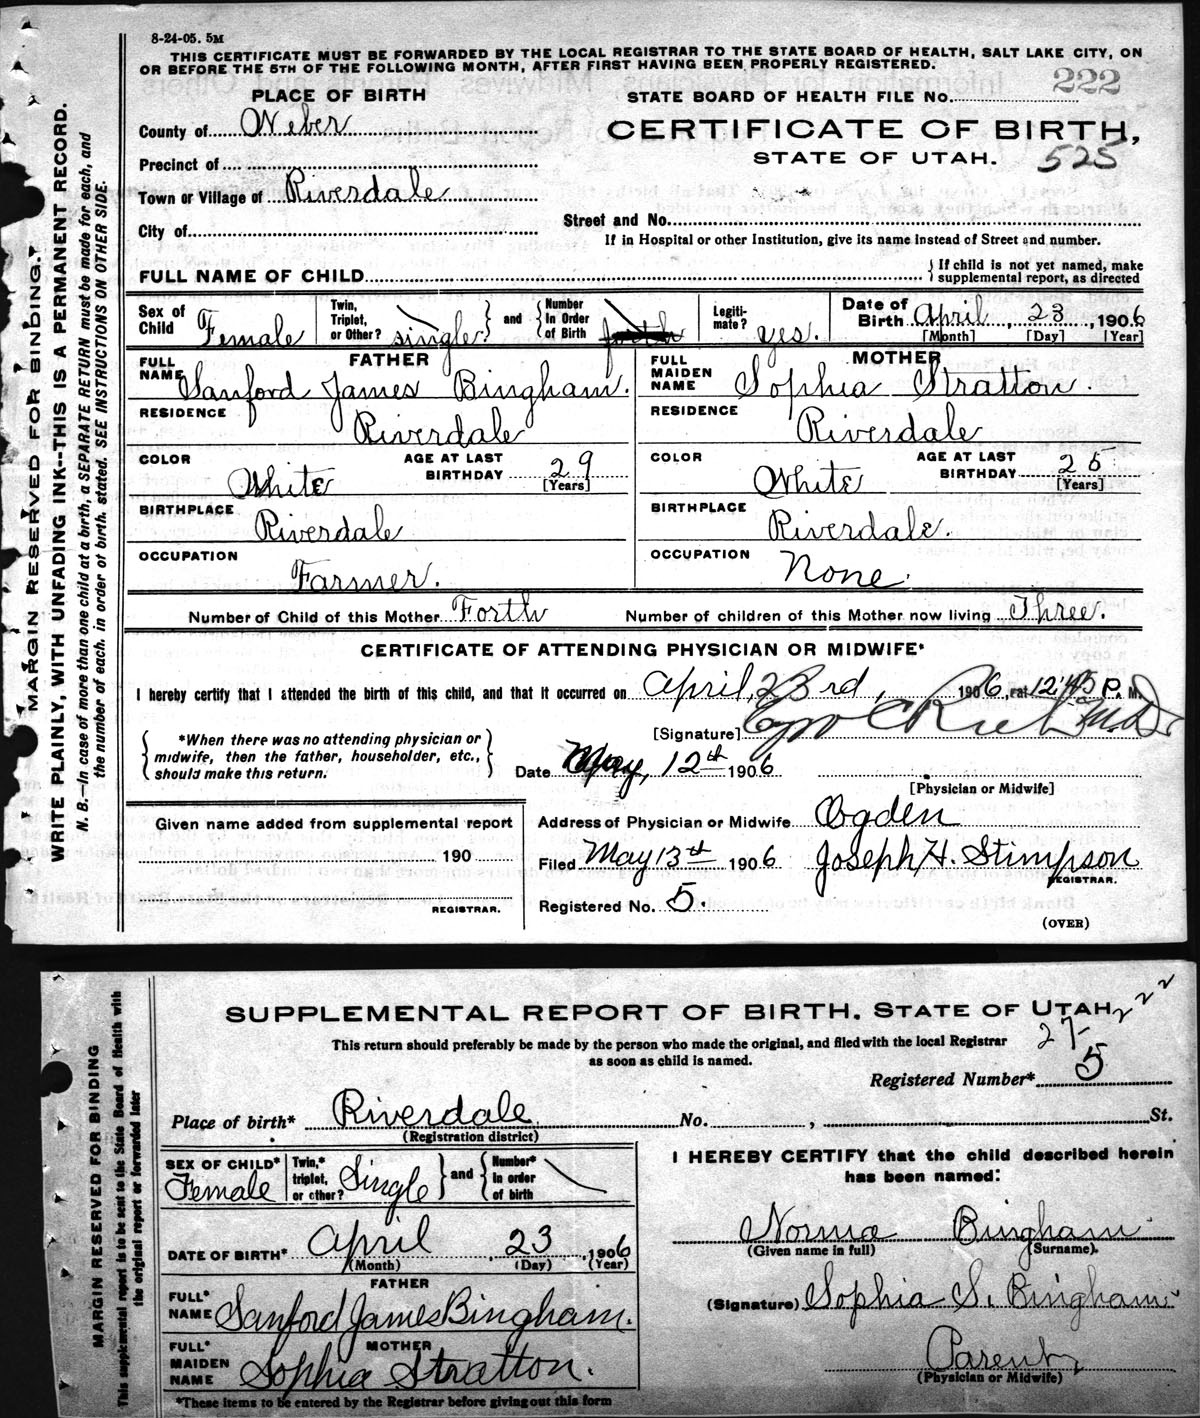 8-24-05. 5M
THIS CERTIFICATE MUST BE FORWARDED BY THE LOCAL REGISTRAR TO THE STATE BOARD OF HEALTH, SALT LAKE CITY, ON
OR BEFORE THE 5TH OF THE FOLLOWING MONTH, AFTER FIRST HAVING BEEN PROPERLY REGISTERED.
PLACE OF BIRTH
STATE BOARD OF HEALTH FILE No. 222
County of Weber
CERTIFICATE OF BIRTH,
Precinct of
STATE OF UTAH. 525
Town or Village of Riverdale
Street and No.
City of
If in Hospital or other Institution, give its name instead of Street and number.
FULL NAME OF CHILD
{ If child is not yet named, make supplemental report, as directed
Sex of Child Female
Twin, Triplet, or Other? single
and
Number in Order of Birth forth
Legitimate? yes.
Date of Birth April, 23, 1906
[Month] [Day] [Year]
FATHER
FULL NAME Sanford James Bingham.
RESIDENCE Riverdale
COLOR White
AGE AT LAST BIRTHDAY 29 [Years]
BIRTHPLACE Riverdale
OCCUPATION Farmer.
MOTHER
FULL MAIDEN NAME Sophia Stratton.
RESIDENCE Riverdale
COLOR White
AGE AT LAST BIRTHDAY 25 [Years]
BIRTHPLACE Riverdale.
OCCUPATION None.
Number of Child of this Mother Forth
Number of children of this Mother now living Three.
CERTIFICATE OF ATTENDING PHYSICIAN OR MIDWIFE*
I hereby certify that I attended the birth of this child, and that it occurred on April, 23rd, 1906, at 12:45 P. M.
[Signature] M.D.
*When there was no attending physician or
midwife, then the father, householder, etc.,
should make this return.
Date May, 12th 1906
[Physician or Midwife]
Given name added from supplemental report
190
REGISTRAR.
Address of Physician or Midwife Ogden
Filed May 13th 1906 Joseph H. Stimpson
REGISTRAR.
Registered No. 5.
(OVER)
MARGIN RESERVED FOR BINDING.
WRITE PLAINLY, WITH UNFADING INK--THIS IS A PERMANENT RECORD.
N. B.—In case of more than one child at a birth, a SEPARATE RETURN must be made for each, and
the number of each. in order of birth. stated. SEE INSTRUCTIONS ON OTHER SIDE.
SUPPLEMENTAL REPORT OF BIRTH, STATE OF UTAH 222
This return should preferably be made by the person who made the original, and filed with the local Registrar
as soon as child is named.
Registered Number* 5
Place of birth* Riverdale No. , St.
(Registration district)
SEX OF CHILD* Female
Twin,* triplet, or other? Single
and
Number* in order of birth
DATE OF BIRTH* April, 23, 1906
(Month) (Day) (Year)
FATHER
FULL* NAME Sanford James Bingham.
MOTHER
FULL* MAIDEN NAME Sophia Stratton.
*These items to be entered by the Registrar before giving out this form
I HEREBY CERTIFY that the child described herein
has been named:
Norma Bingham
(Given name in full) (Surname).
(Signature) Sophia S. Bingham
Parent
(Physician or Midwife)
MARGIN RESERVED FOR BINDING
This supplemental report is to be sent to the State Board of Health with
the original report or forwarded later